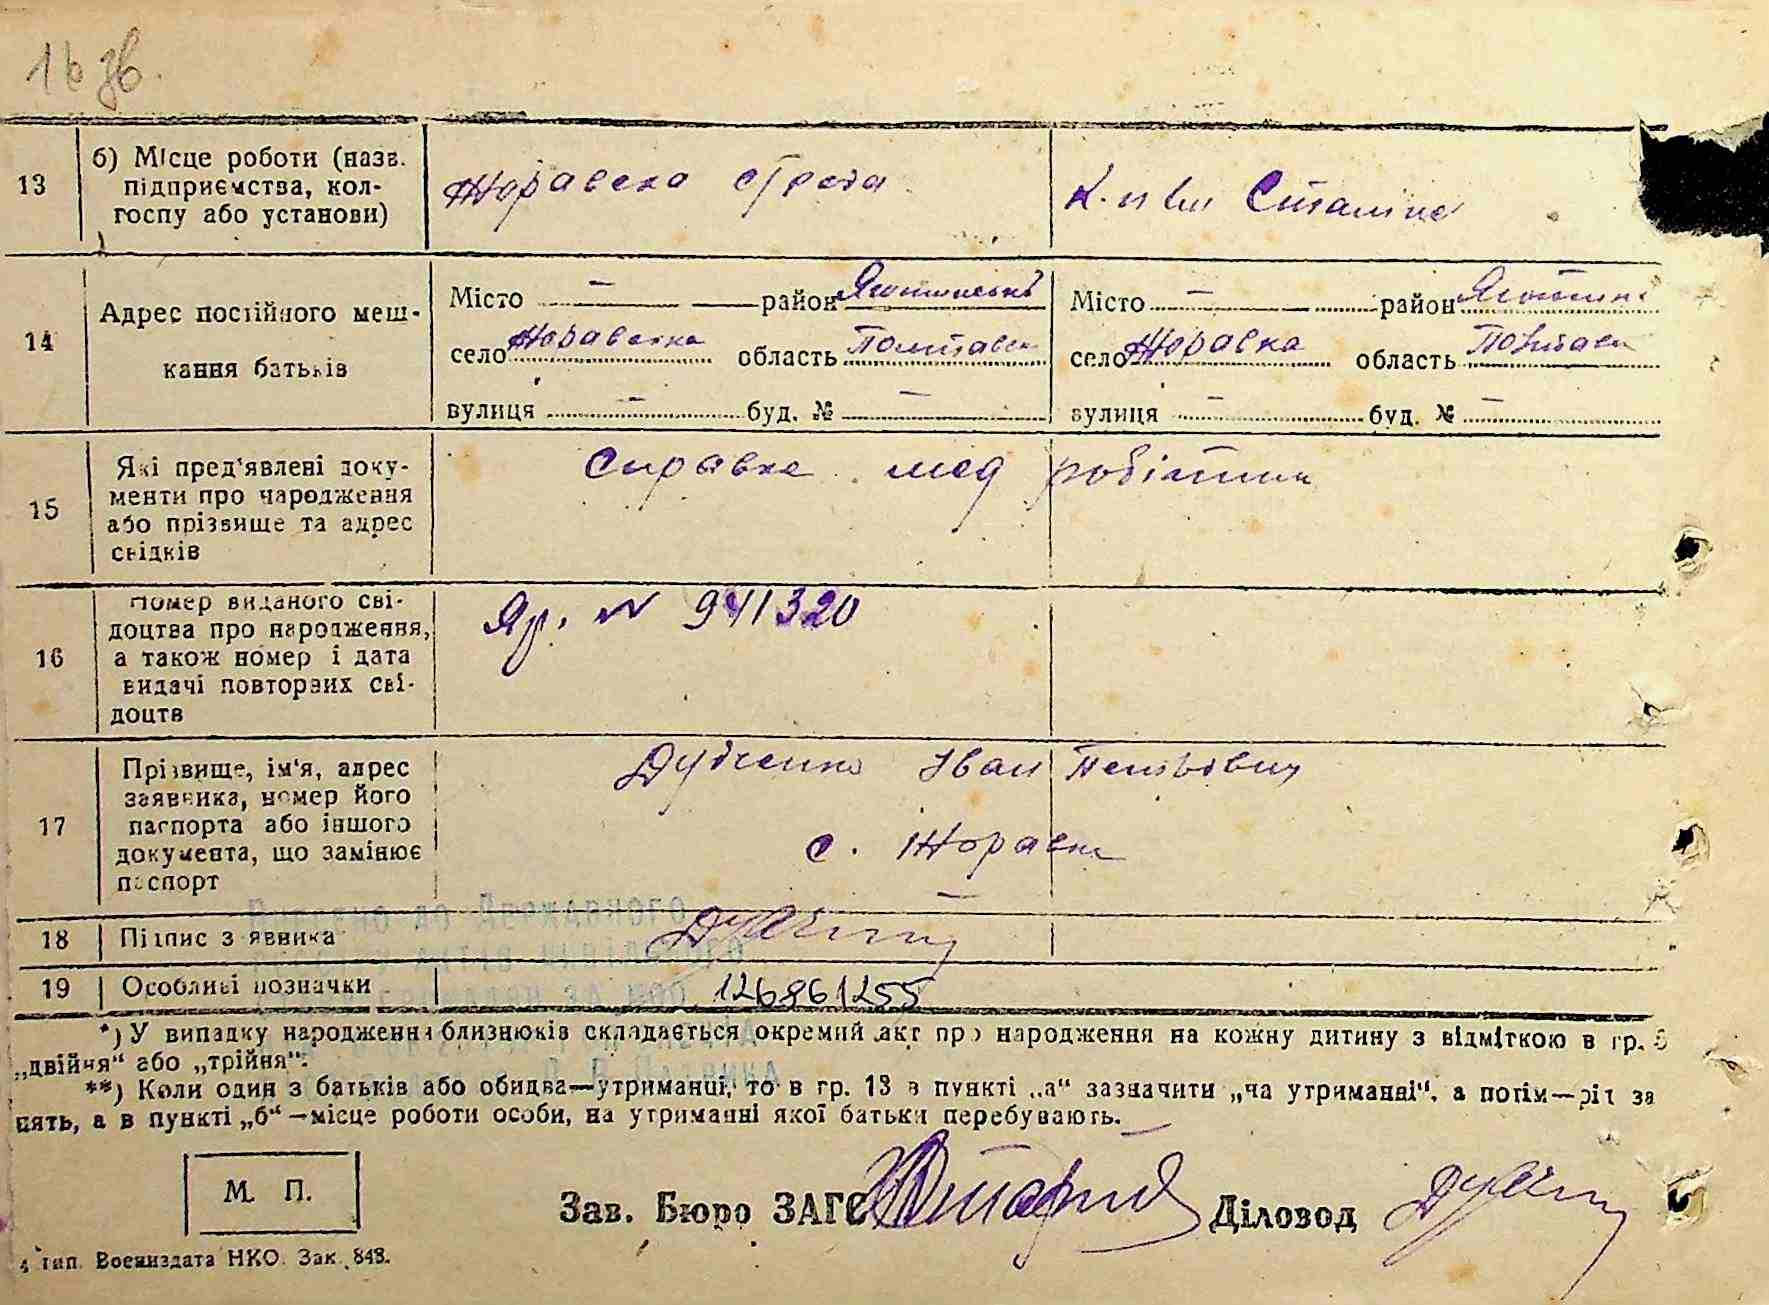 16 зв.
13
б) Місце роботи (назв. підприємства, колгоспу або установи)
Жоравска
К-п ім Сталіна
14
Адрес постійного мешкання батьків
Місто — район Яготинськ
село Жоравка область Полтавськ
вулиця — буд. № —
Місто — район Яготинс
село Жоравка область Полтавсь
вулиця — буд. № —
15
Які пред'явлені документи про народження або прізвище та адрес свідків
Справка мед робітник
16
Номер виданого свідоцтва про народження, а також номер і дата видачі повторних свідоцтв
Яр. № 941320
17
Прізвище, ім'я, адрес заявника, номер його паспорта або іншого документа, що замінює паспорт
Дубченко Іван Петрович
с. Жоравка
18
Підпис заявника
19
Особливі позначки
126861255
*) У випадку народження близнюків складається окремий акт про народження на кожну дитину з відміткою в гр. 5
„двійня“ або „трійня“.
**) Коли один з батьків або обидва—утриманці, то в гр. 13 в пункті „а“ зазначити „на утриманні“, а потім—ріт за
пять, а в пункті „б“—місце роботи особи, на утриманні якої батьки перебувають.
М. П.
Зав. Бюро ЗАГС
Діловод
4 тип. Воениздата НКО. Зак. 843.